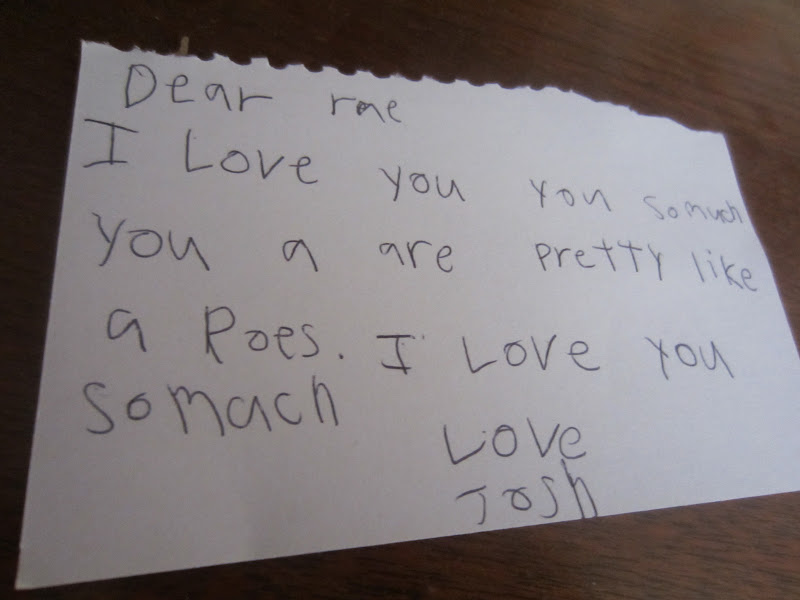 Dear rae
I Love you you somuch
you a are pretty like
a Roes. I Love you
somach
Love
Josh